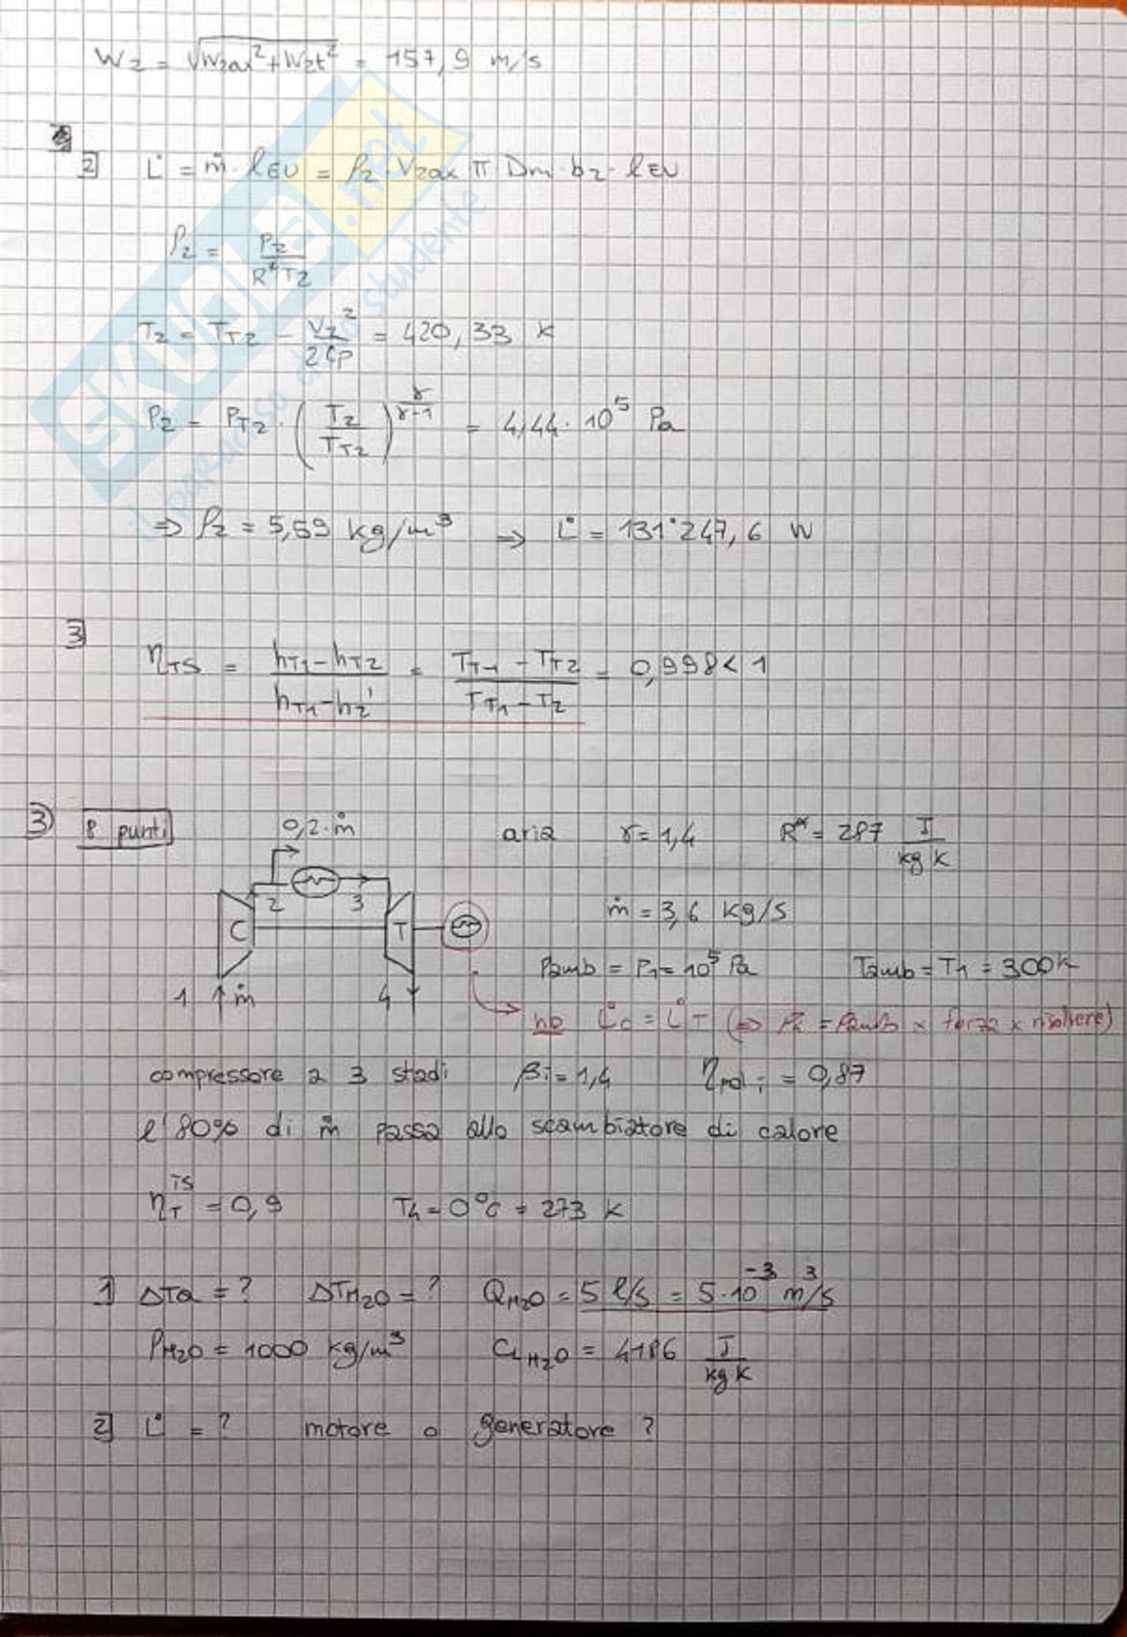 W2 = √W2ax² + W2t² = 157,9 m/s
2] L̇ = ṁ · lEU = ρ2 V2ax π Dm · b2 · lEU
ρ2 = P2 / R* T2
T2 = TT2 - V2² / 2Cp = 420,33 K
P2 = PT2 · (T2 / TT2)^γ/γ-1 = 4,44 · 10⁵ Pa
⇒ ρ2 = 5,59 kg/m³ ⇒ L̇ = 131'247,6 W
3]
ηTS = hT1 - hT2 / hT1 - h2' = TT1 - TT2 / TT1 - T2 = 0,998 < 1
3) 8 punti 0,2 · ṁ aria γ = 1,4 R* = 287 J / kg K
2 3 ṁ = 3,6 kg/s
C T
Pamb = P1 = 10⁵ Pa Tamb = T1 = 300 K
1 ṁ 4
no L̇C = L̇T (⇒ P4 = Pamb x forza x risolvere)
compressore a 3 stadi βi = 1,4 ηpol i = 0,87
l'80% di ṁ passa allo scambiatore di calore
ηT^TS = 0,9 T4 = 0°C = 273 K
1] ΔTa = ? ΔTH2O = ? QH2O = 5 l/s = 5 · 10⁻³ m³/s
ρH2O = 1000 kg/m³ CL H2O = 4186 J / kg K
2] L̇ = ? motore o generatore ?
SKUOLA.net